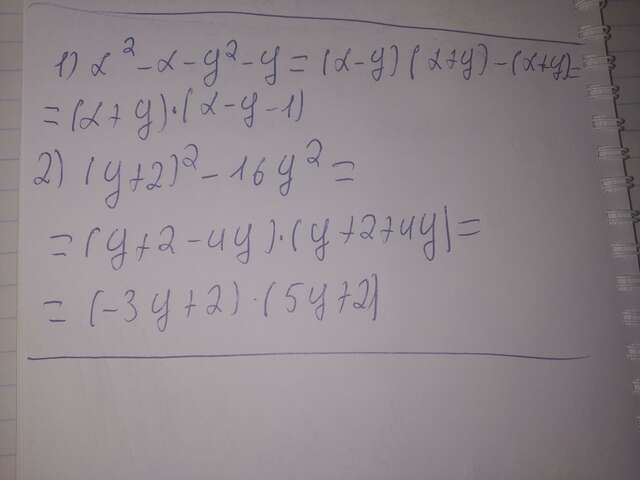 1) x² - x - y² - y = (x - y) (x + y) - (x + y) =
= (x + y) · (x - y - 1)
2) (y + 2)² - 16y² =
= (y + 2 - 4y) · (y + 2 + 4y) =
= (-3y + 2) · (5y + 2)